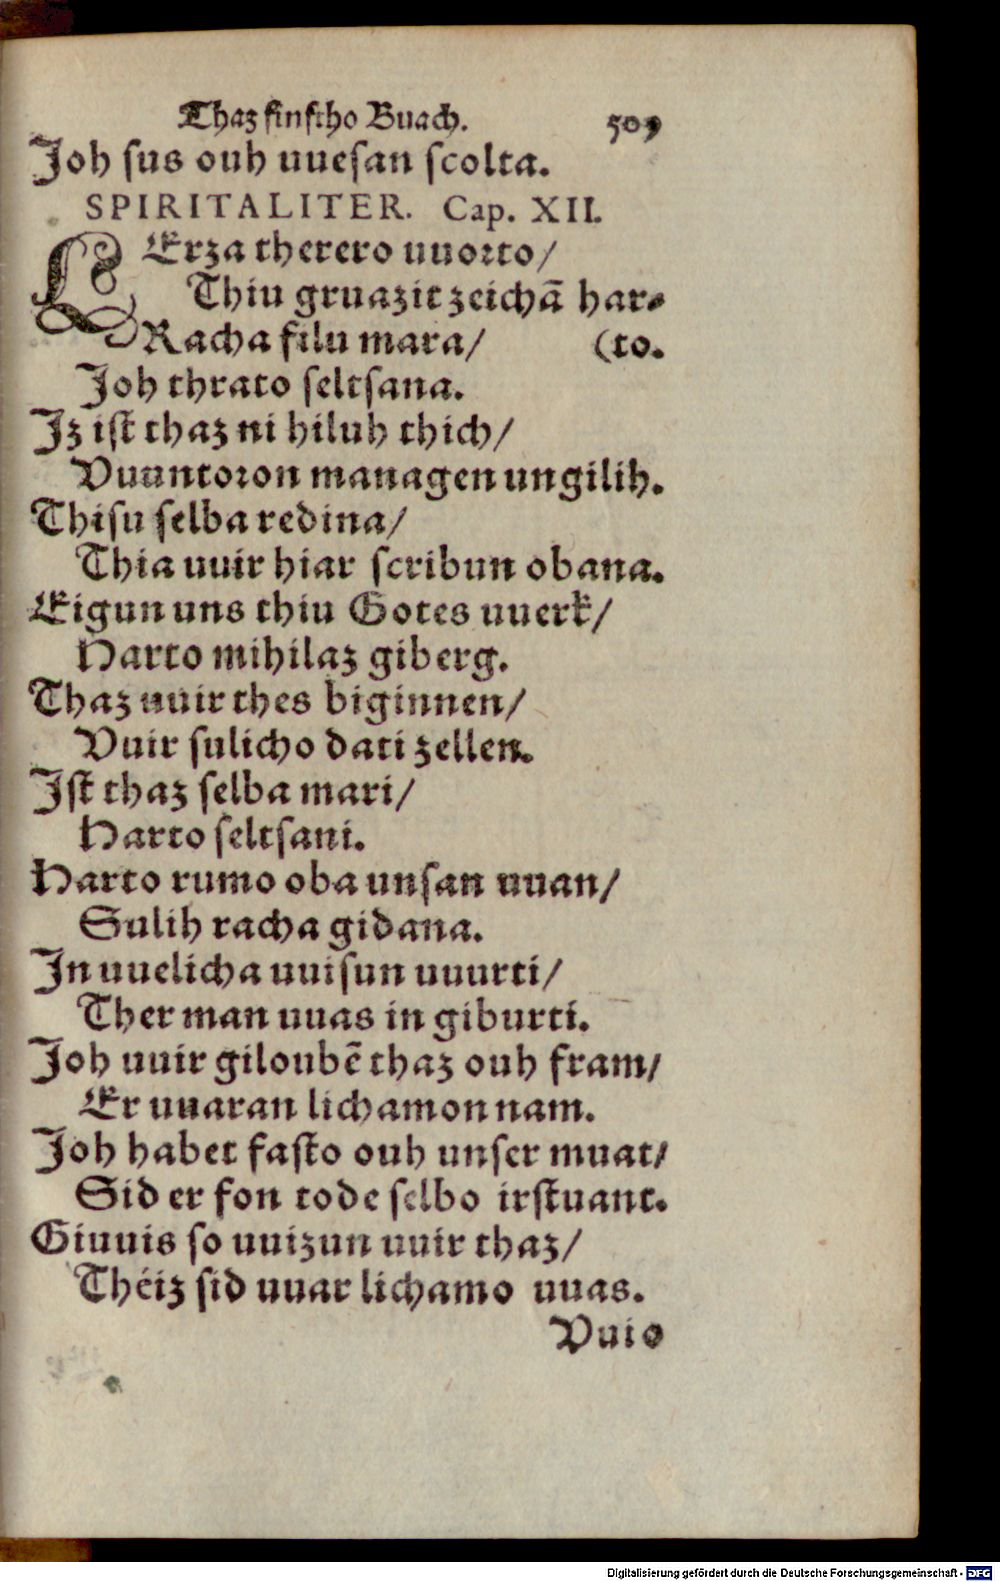 Thaz finftho Buach. 509
Joh sus ouh uuesan scolta.
SPIRITALITER. Cap. XII.
LErza therero uuorto/
Thiu gruazit zeichā har-
Racha filu mara/ (to.
Joh thrato seltsana.
Jz ist thaz ni hiluh thich/
Vuuntoron managen ungilih.
Thisu selba redina/
Thia uuir hiar scribun obana.
Eigun uns thiu Gotes uuerk/
Harto mihilaz giberg.
Thaz uuir thes biginnen/
Vuir sulicho dati zellen.
Jst thaz selba mari/
Harto seltsani.
Harto rumo oba unsan uuan/
Sulih racha gidana.
Jn uuelicha uuisun uuurti/
Ther man uuas in giburti.
Joh uuir giloubē thaz ouh fram/
Er uuaran lichamon nam.
Joh habet fasto ouh unser muat/
Sid er fon tode selbo irstuant.
Giuuis so uuizun uuir thaz/
Théiz sid uuar lichamo uuas.
Vuio
Digitalisierung gefördert durch die Deutsche Forschungsgemeinschaft - DFG